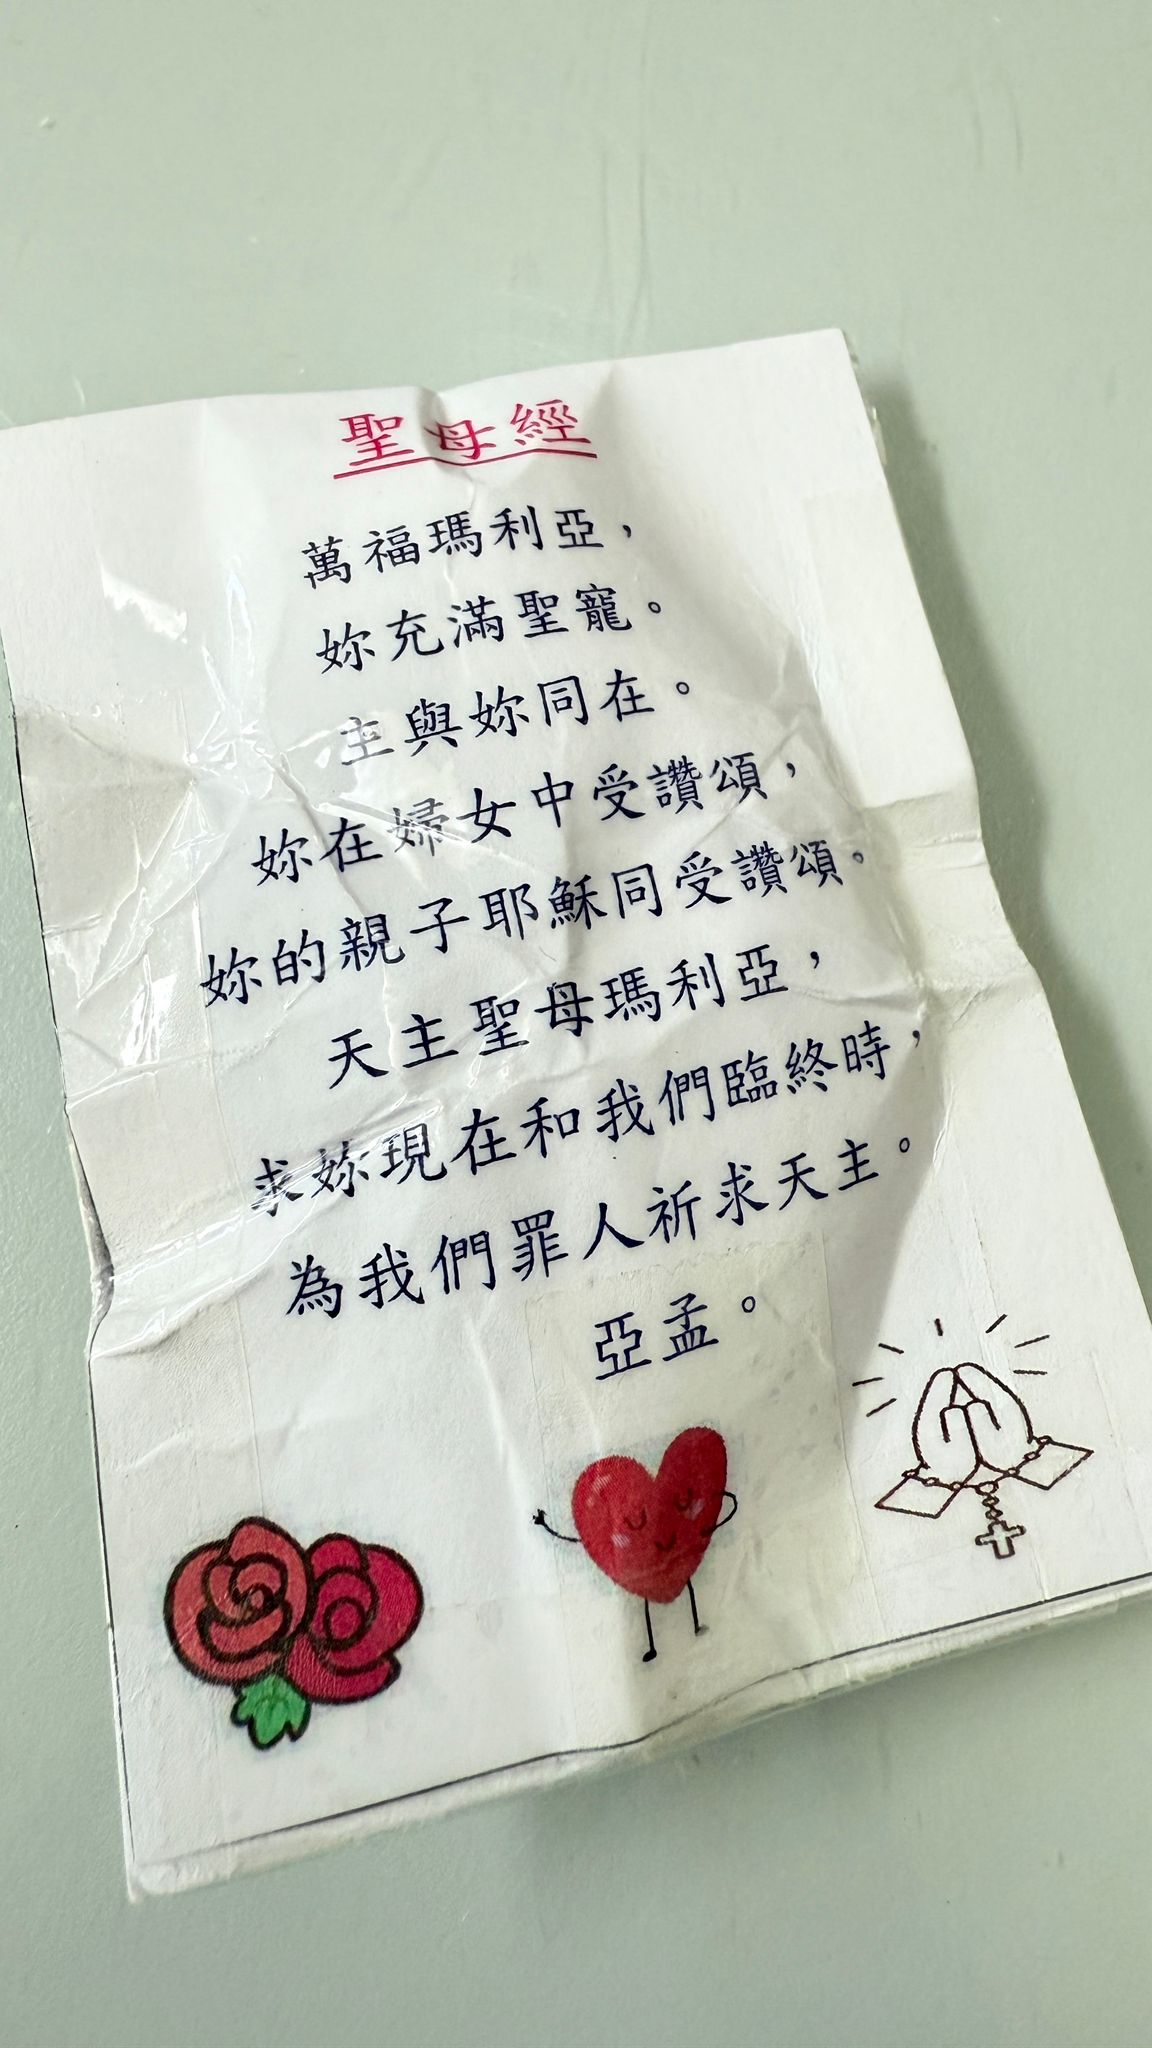 聖母經
萬福瑪利亞，
妳充滿聖寵。
主與妳同在。
妳在婦女中受讚頌，
妳的親子耶穌同受讚頌。
天主聖母瑪利亞，
求妳現在和我們臨終時，
為我們罪人祈求天主。
亞孟。